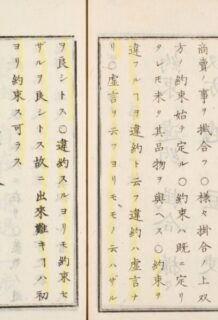 商賣ノ事ヲ掛合フ○様々掛合ノ上双
方約束始テ定ル○約束ハ既ニ定リ
タレモ未タ其品物ヲ與ヘス○約束ヲ
違フルヿヲ違約ト云フ違約ハ虚言ナ
リ○虚言ヲ云フヨリモモノ云ハザル
ヲ良シトス○違約スルヨリモ約束セ
ザルヲ良シトス故ニ出來難キヿハ初
ヨリ約束ス可ラス